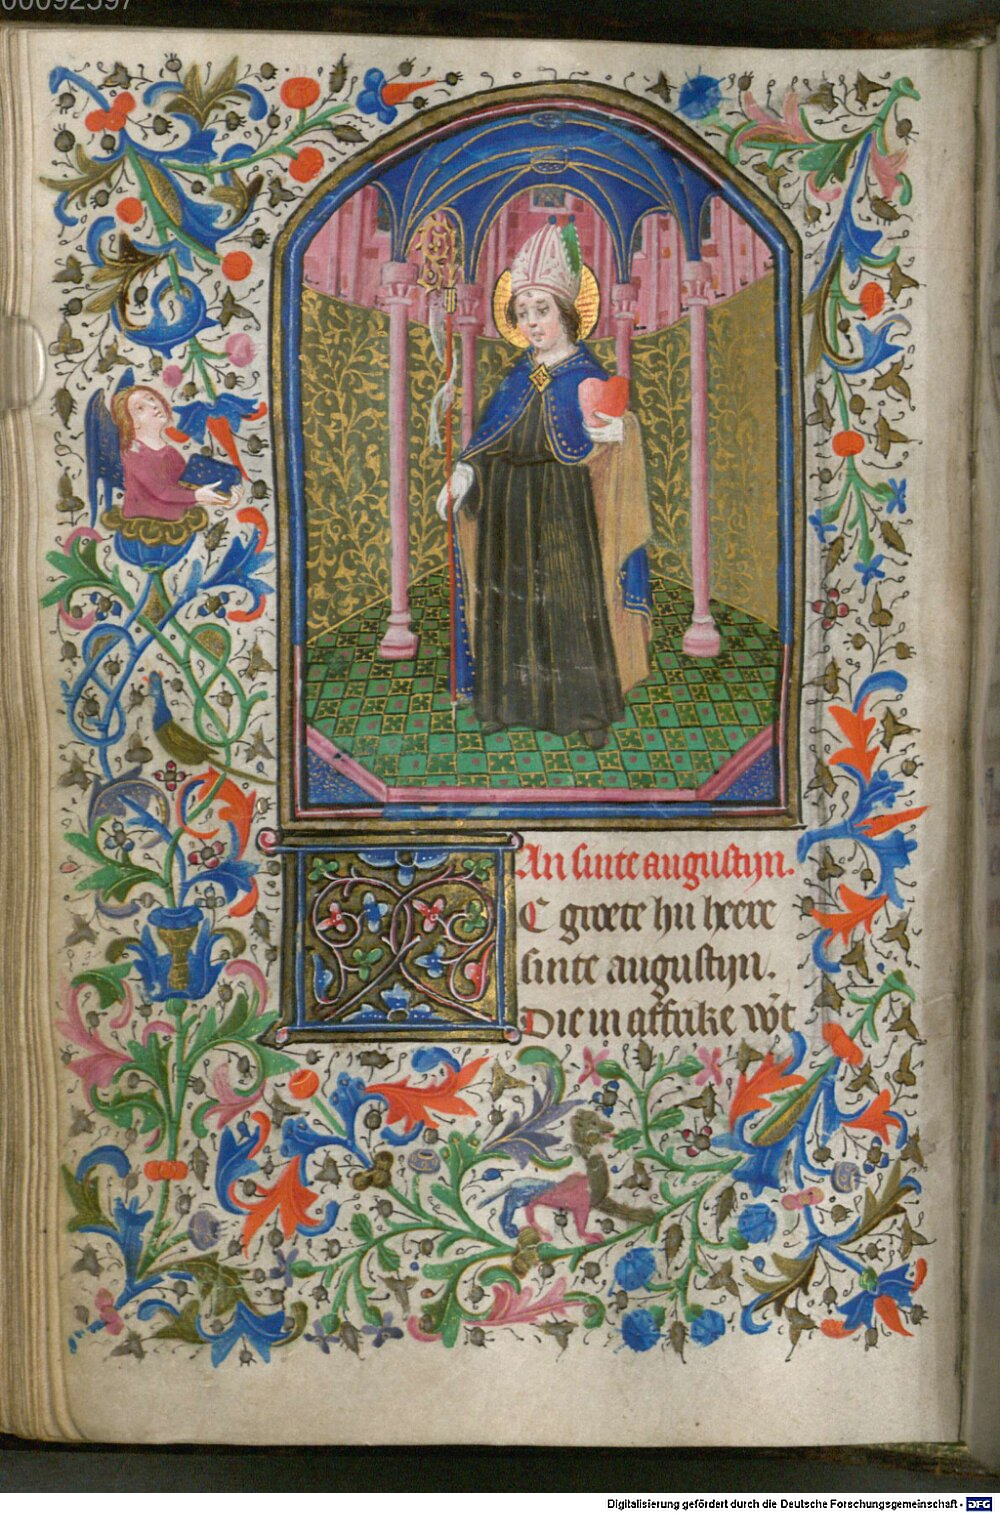 00092597
An sinte augustijn.
C groete hu heere
sinte augustyn.
Die in affrike wōt
Digitalisierung gefördert durch die Deutsche Forschungsgemeinschaft - DFG